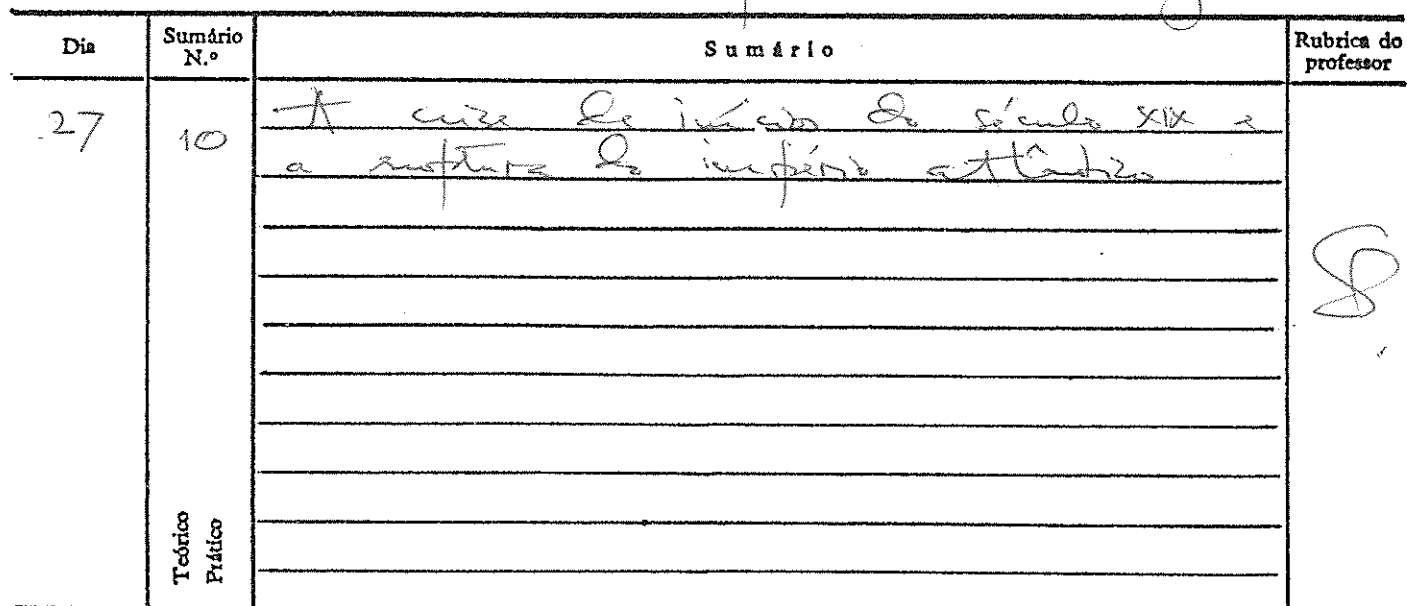 Dia
Sumário N.º
Sumário
Rubrica do professor
27
10
A crise de inícios do século XIX e
a ruptura do império atlântico
Teórico
Prático